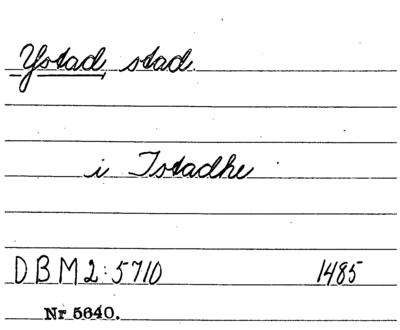 Ystad, stad.
i Istadhe
DBM2:5710 1485
Nr 5640.